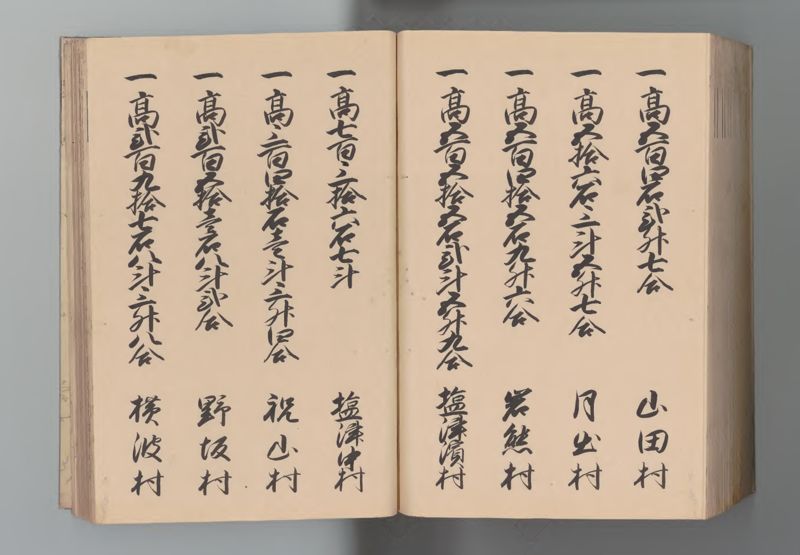 一高五百四石弐升七合 山田村
一高五拾六石三斗五升七合 月出村
一高五百四拾五石九升六合 岩熊村
一高五百五拾五石弐斗五升九合 塩津濱村
一高七百三拾六石七斗 塩津中村
一高三百四拾石壱斗三升四合 祝山村
一高弐百五拾壱石八斗弐合 野坂村
一高弐百九拾七石八斗三升八合 横波村